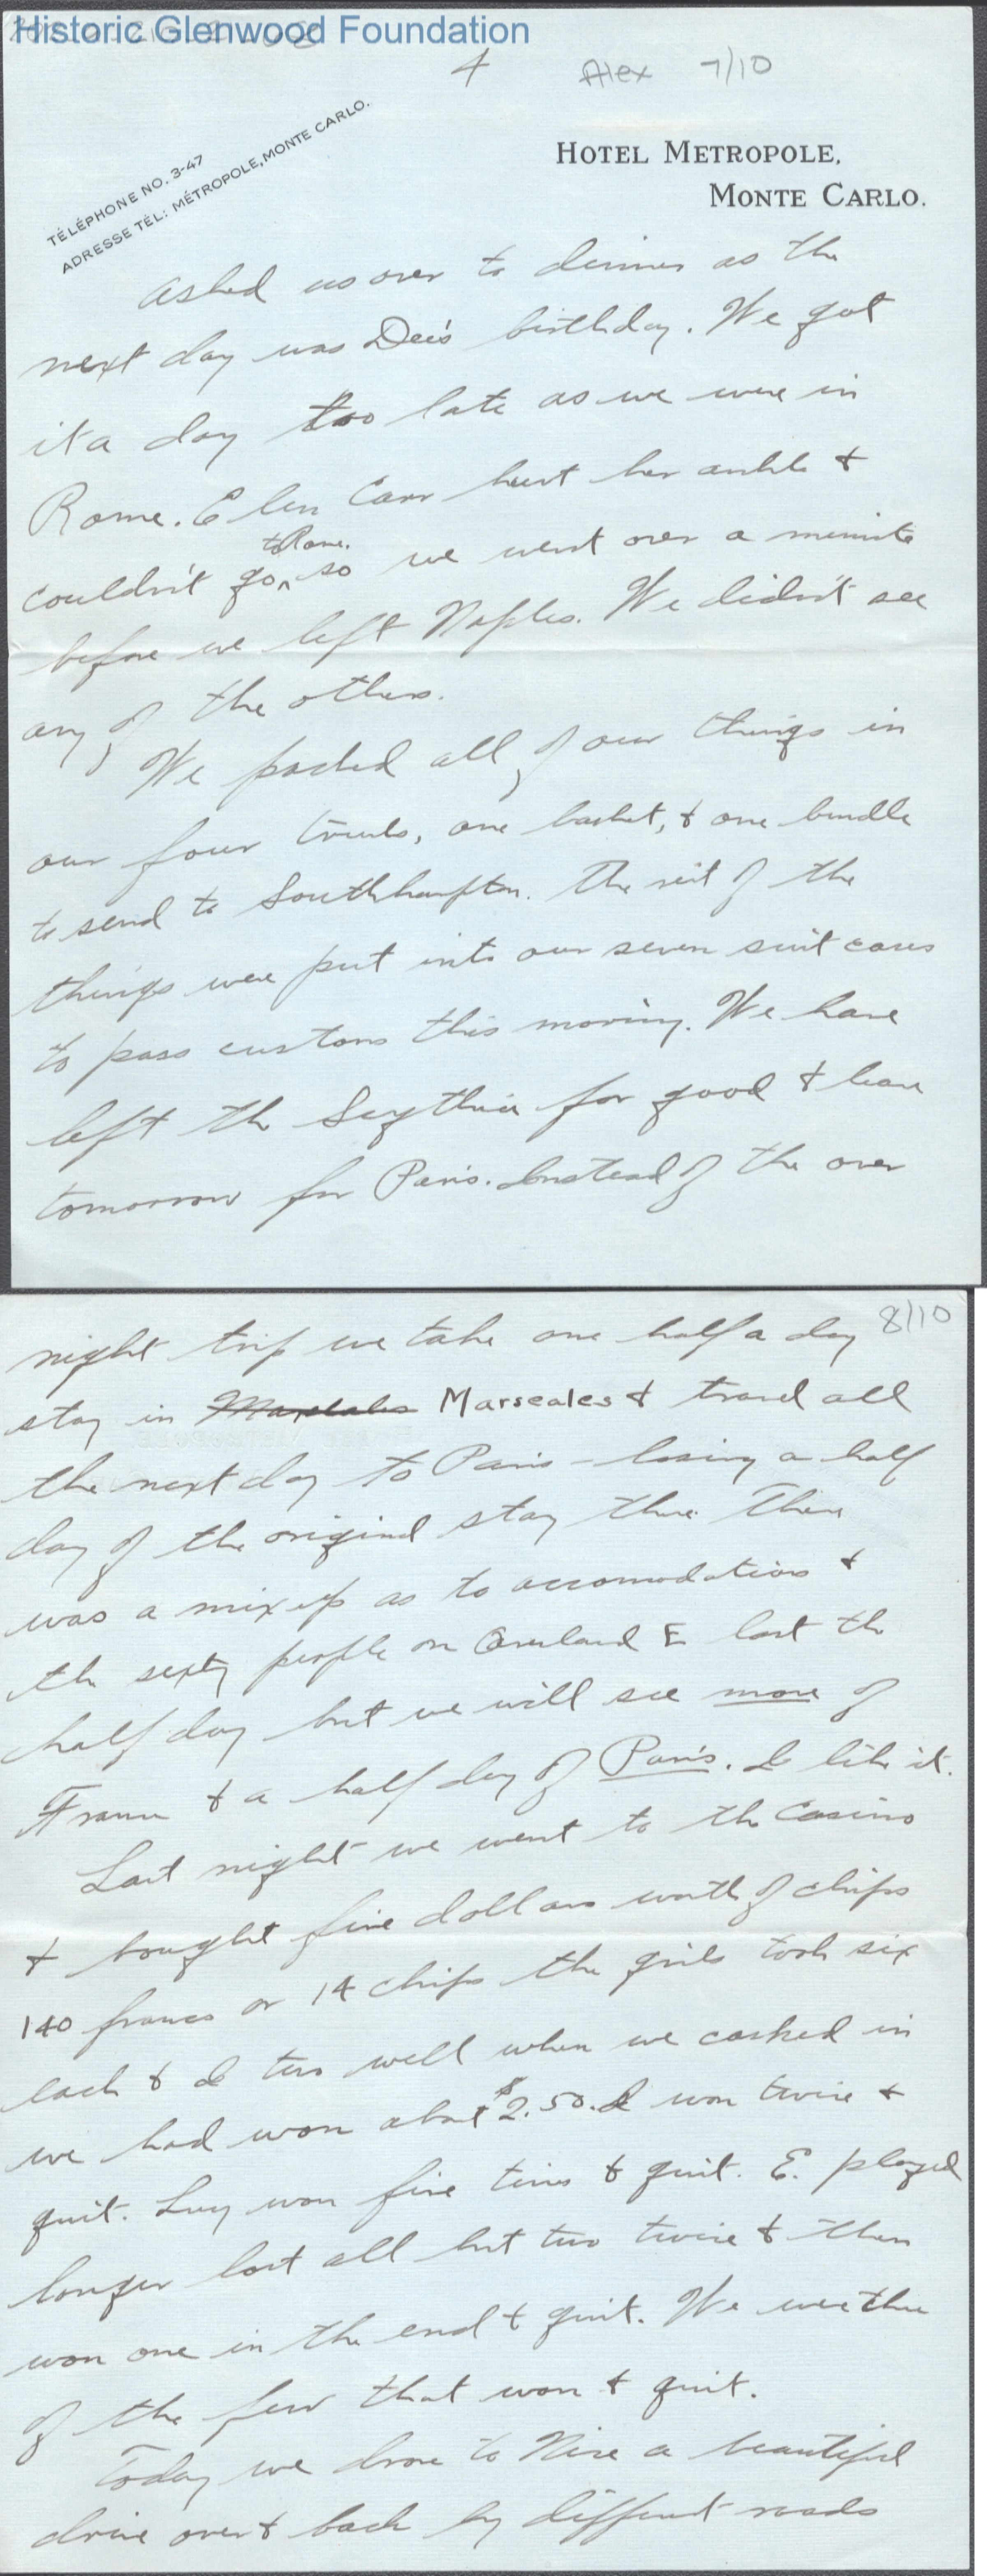 Historic Glenwood Foundation
4 Alex 7/10
TÉLÉPHONE NO. 3-47
ADRESSE TÉL: MÉTROPOLE, MONTE CARLO.
HOTEL METROPOLE,
MONTE CARLO.
asked us over to dinner as the
next day was Dee's birthday. We got
it a day too late as we were in
Rome. Elen Carr hurt her ankle &
to Rome.
couldn't go, so we went over a minute
before we left Naples. We didn't see
any of the others.
We packed all of our things in
our four trunks, one basket, & one bundle
to send to Southhampton. The rest of the
things were put into our seven suit cases
to pass customs this morning. We have
left the Scythia for good & leave
tomorrow for Paris. Instead of the over
8/10
night trip we take one half a day
stay in Marseales & travel all
the next day to Paris - losing a half
day of the original stay there. There
was a mix up as to accomodations &
the sixty people on Overland E lost the
half day but we will see more of
France & a half day of Paris. I like it.
Last night we went to the Casino
& bought five dollars worth of chips
140 francs or 14 chips the girls took six
each & I two well when we cashed in
we had won about $2.50. I won twice &
quit. Lucy won five times & quit. E. played
longer lost all but two twice & then
won one in the end & quit. We were three
of the few that won & quit.
Today we drove to Nice a beautiful
drive over & back by different roads